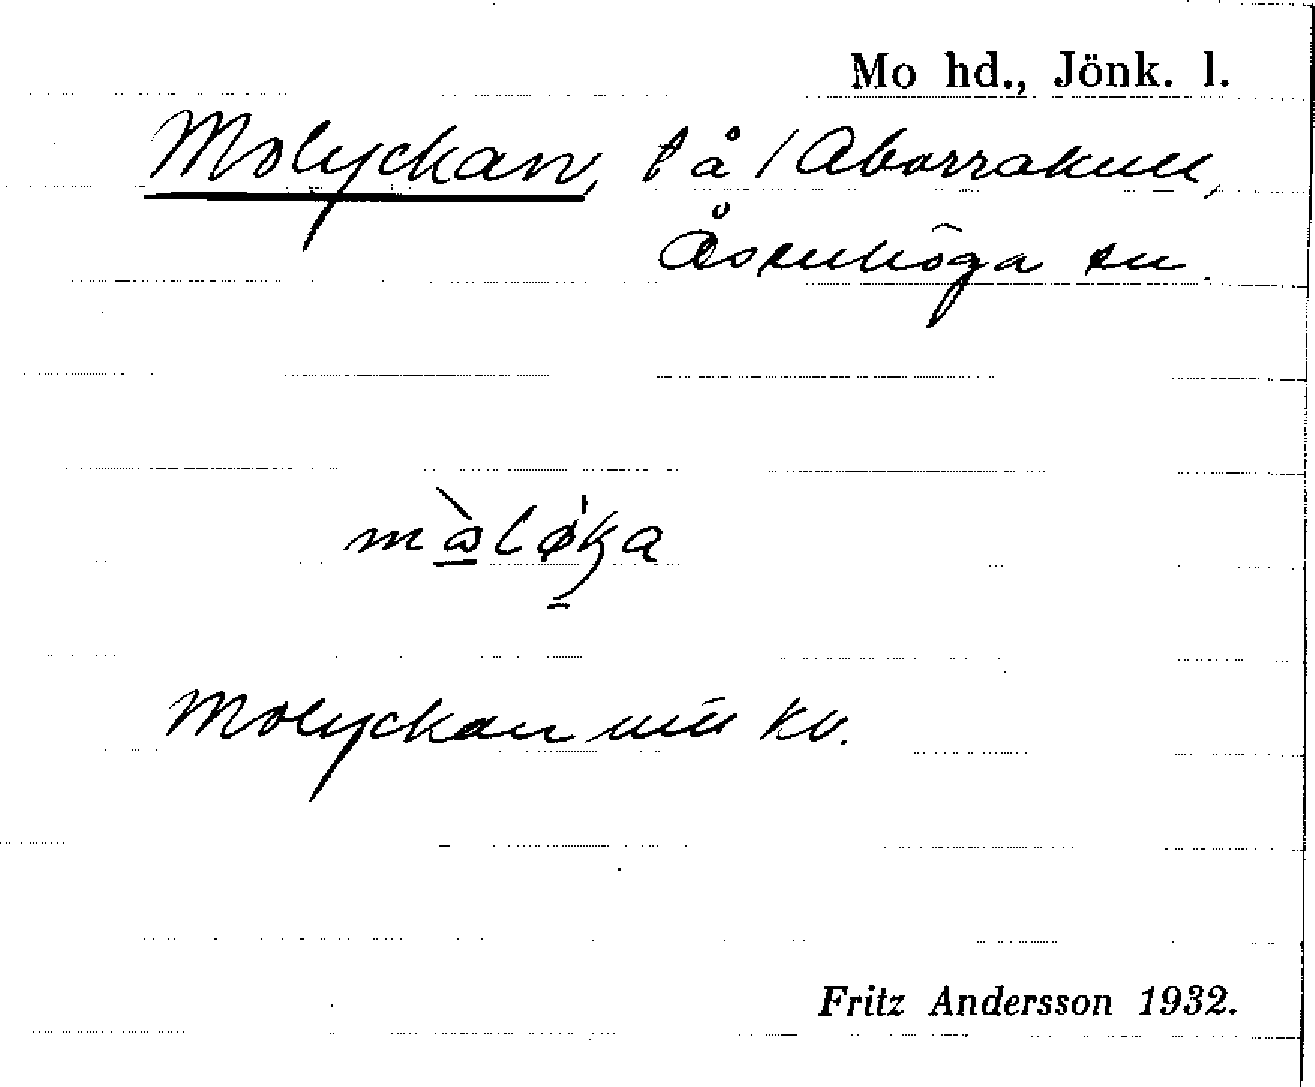 Mo hd., Jönk. l.
Molyckan, t å /Aborrakull,
Åsenhöga sn.
Molyckan näu kv.
Fritz Andersson 1932.